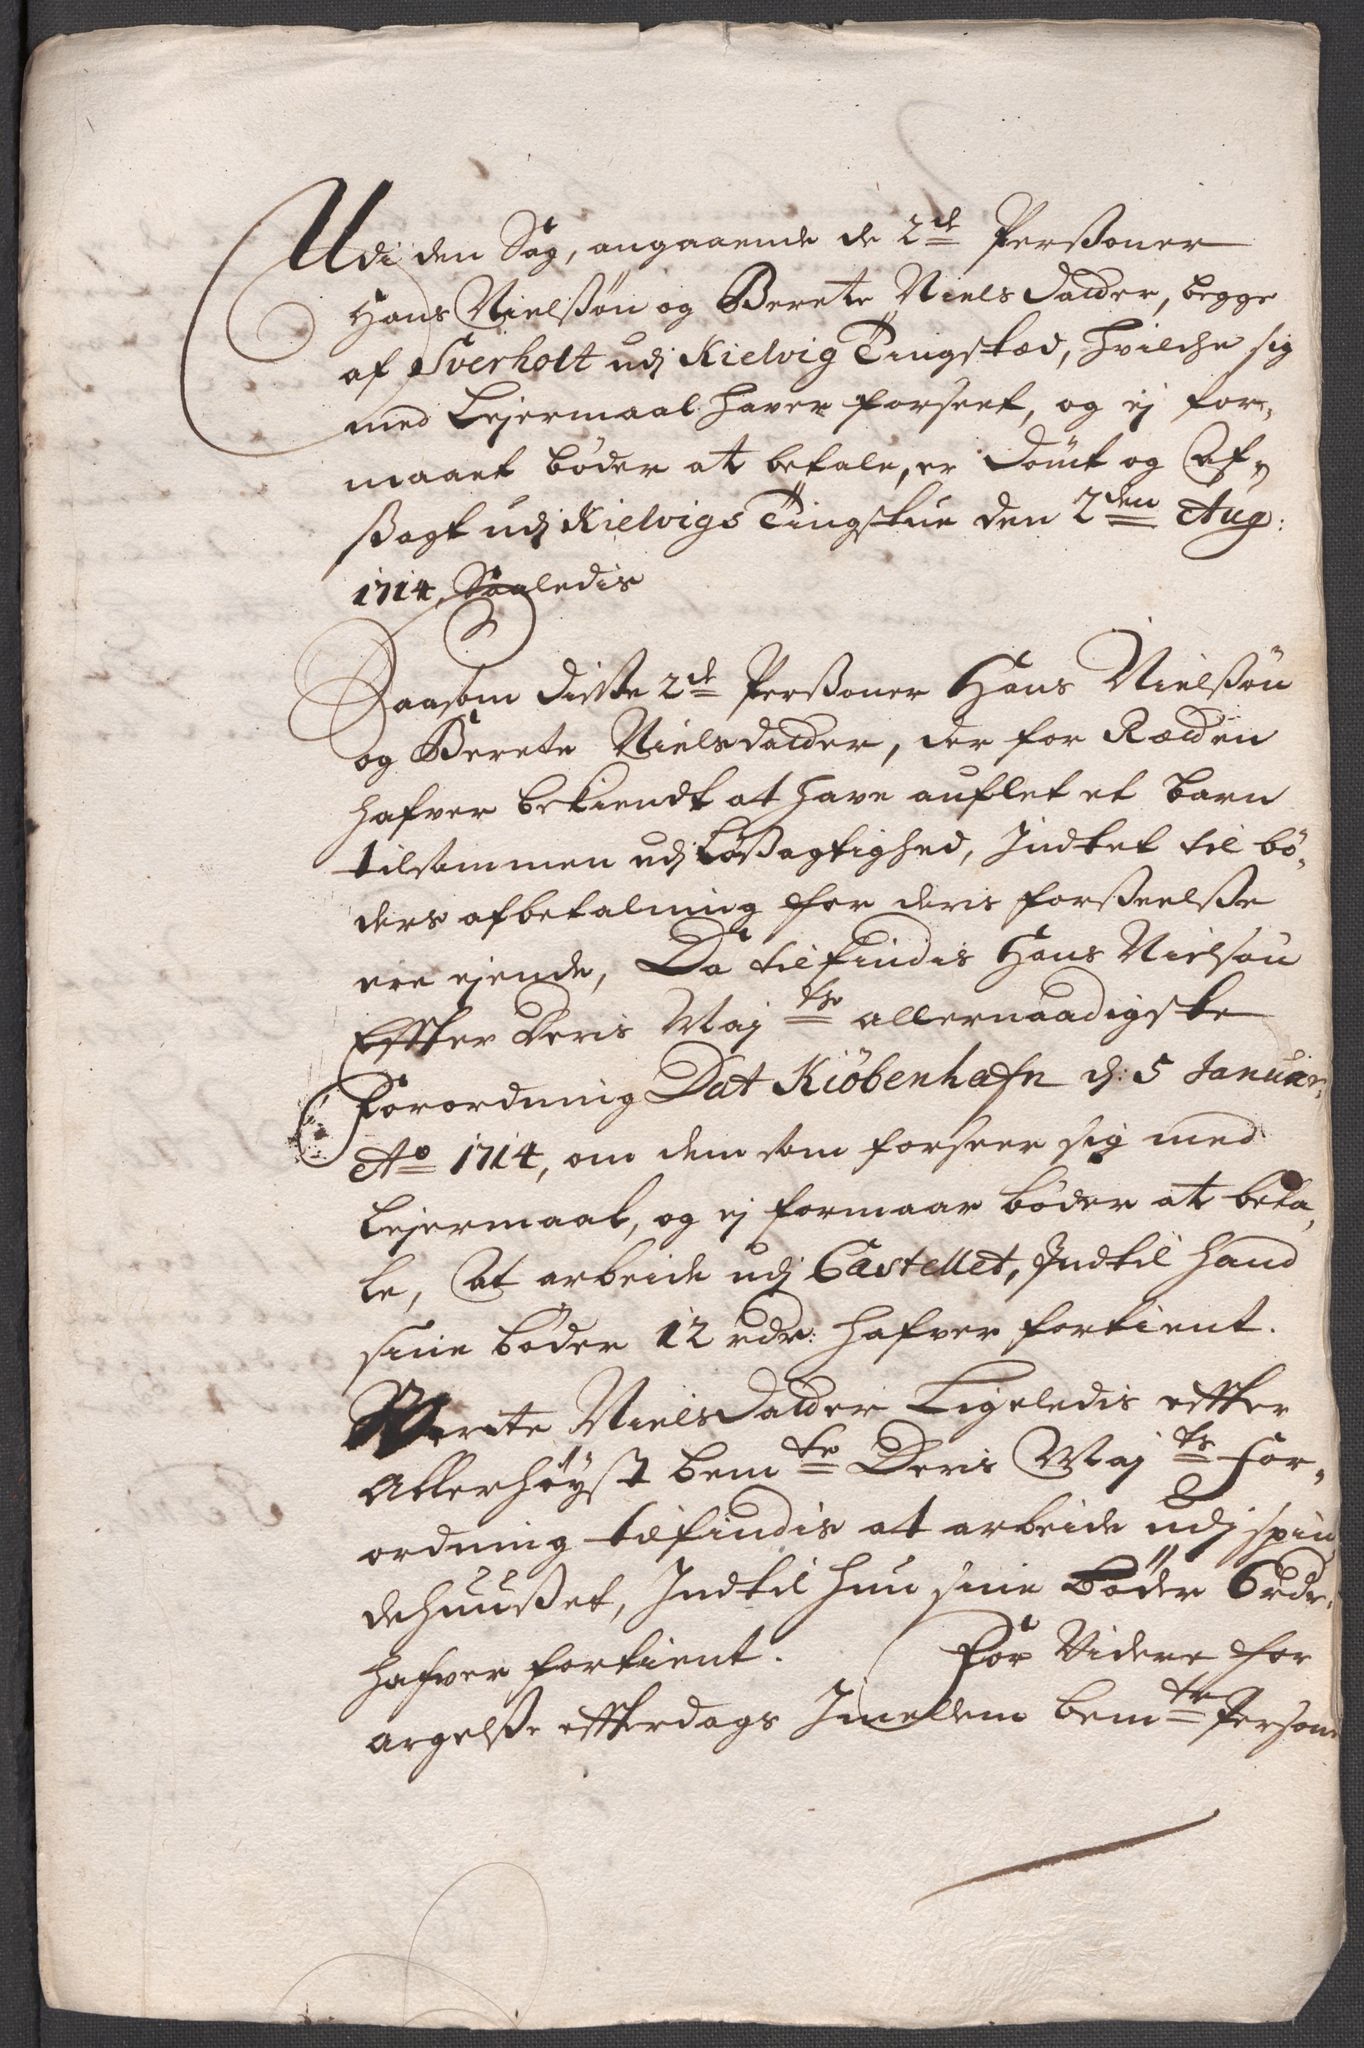 Udi den Sag, angaaende de 2de Perßoner
Hans Nielßøn og Berete Niels Datter, begge
af Sverholt udj Kielvig Tingstæd, hvilche sig
med Lejermaal haver forseet, og ej for-
maaet bøder at betale, er dömt og Af-
ßagt udj Kielvigs Tingstue den 2den Aug:
1714, Saaledis
Saasom disse 2de Perßoner Hans Nielßøn
og Berete Nielsdatter, der for Retten
hafver bekiendt at have auflet et barn
tilsammen udj Løßagtighed, Indtet til bø-
ders afbetalning for deris forßeelße
ere ejende, Da tilfindis Hans Nielsøn
Effter Deris Maj tts allernaadigste
Forordning Dat Kiöbenhafn d: 5 Januar:
Ao 1714, om dem som forseer sig med
Lejermaal, og ej formaar bøder at beta-
le, At arbeide udj Castellet, Indtil hand
sine bøder 12 rdr: hafver fortient.
Berete Niels Datter Ligeledis effter
Allerhøyst bemte Deris Maj ts For-
ordning tilfindis at arbeide udj spin-
dehuußet, Indtil hun sine Bøder 6 rdr.
hafver fortient. For Videre for
argelße effterdags Imellem bemte Persone